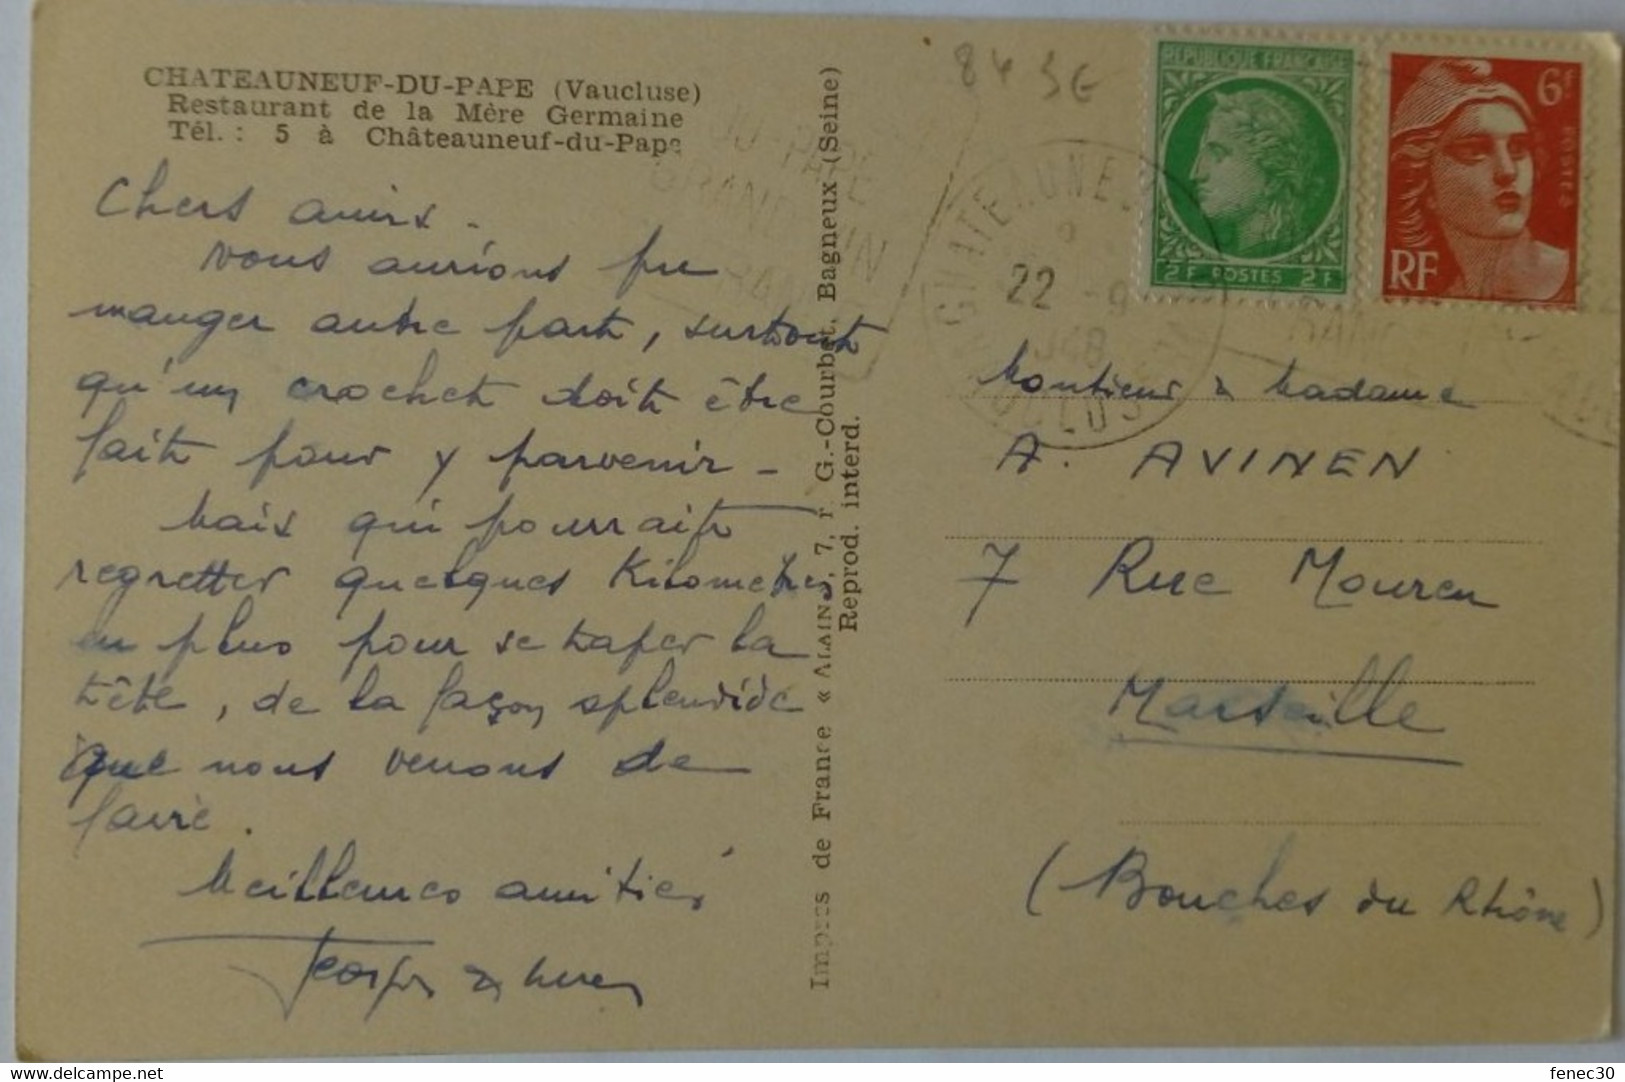 CHATEAUNEUF-DU-PAPE (Vaucluse)
Restaurant de la Mère Germaine
Tél. : 5 à Châteauneuf-du-Pape
Chers amis -
vous aurions pu
manger autre part, surtout
qu'un crochet doit être
fait pour y parvenir -
Mais qui pourrait
regretter quelques kilomètres
en plus pour se taper la
tête, de la façon splendide
que nous venons de
faire.
Meilleures amitiés
Impres de France « ALAIN », 7, r. G.-Courbet, Bagneux (Seine)
Reprod. interd.
84 SE
DU-PAPE
GRAND VIN
CHATEAUNEUF
22 -9
1948
VAUCLUSE
REPUBLIQUE FRANÇAISE
2F POSTES 2F
6F
POSTES
RF
Monsieur & Madame
A. AVINEN
7 Rue Mouren
Marseille
(Bouches du Rhône)
delcampe.net
fenec30